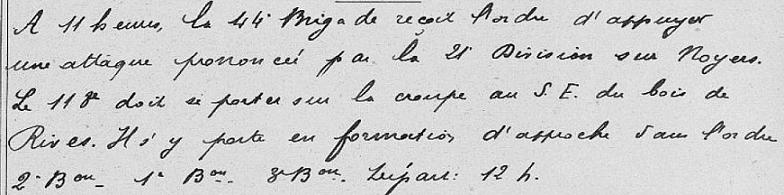 A 11 heures, la 44e Brigade reçoit l'ordre d'appuyer
une attaque prononcée par la 21e Division sur Noyers.
Le 118e doit se porter sur la croupe au S.E. du bois de
Rives. Il s'y porte en formation d'approche dans l'ordre
2e Bon _ 1e Bon _ 3e Bon. Départ: 12 h.